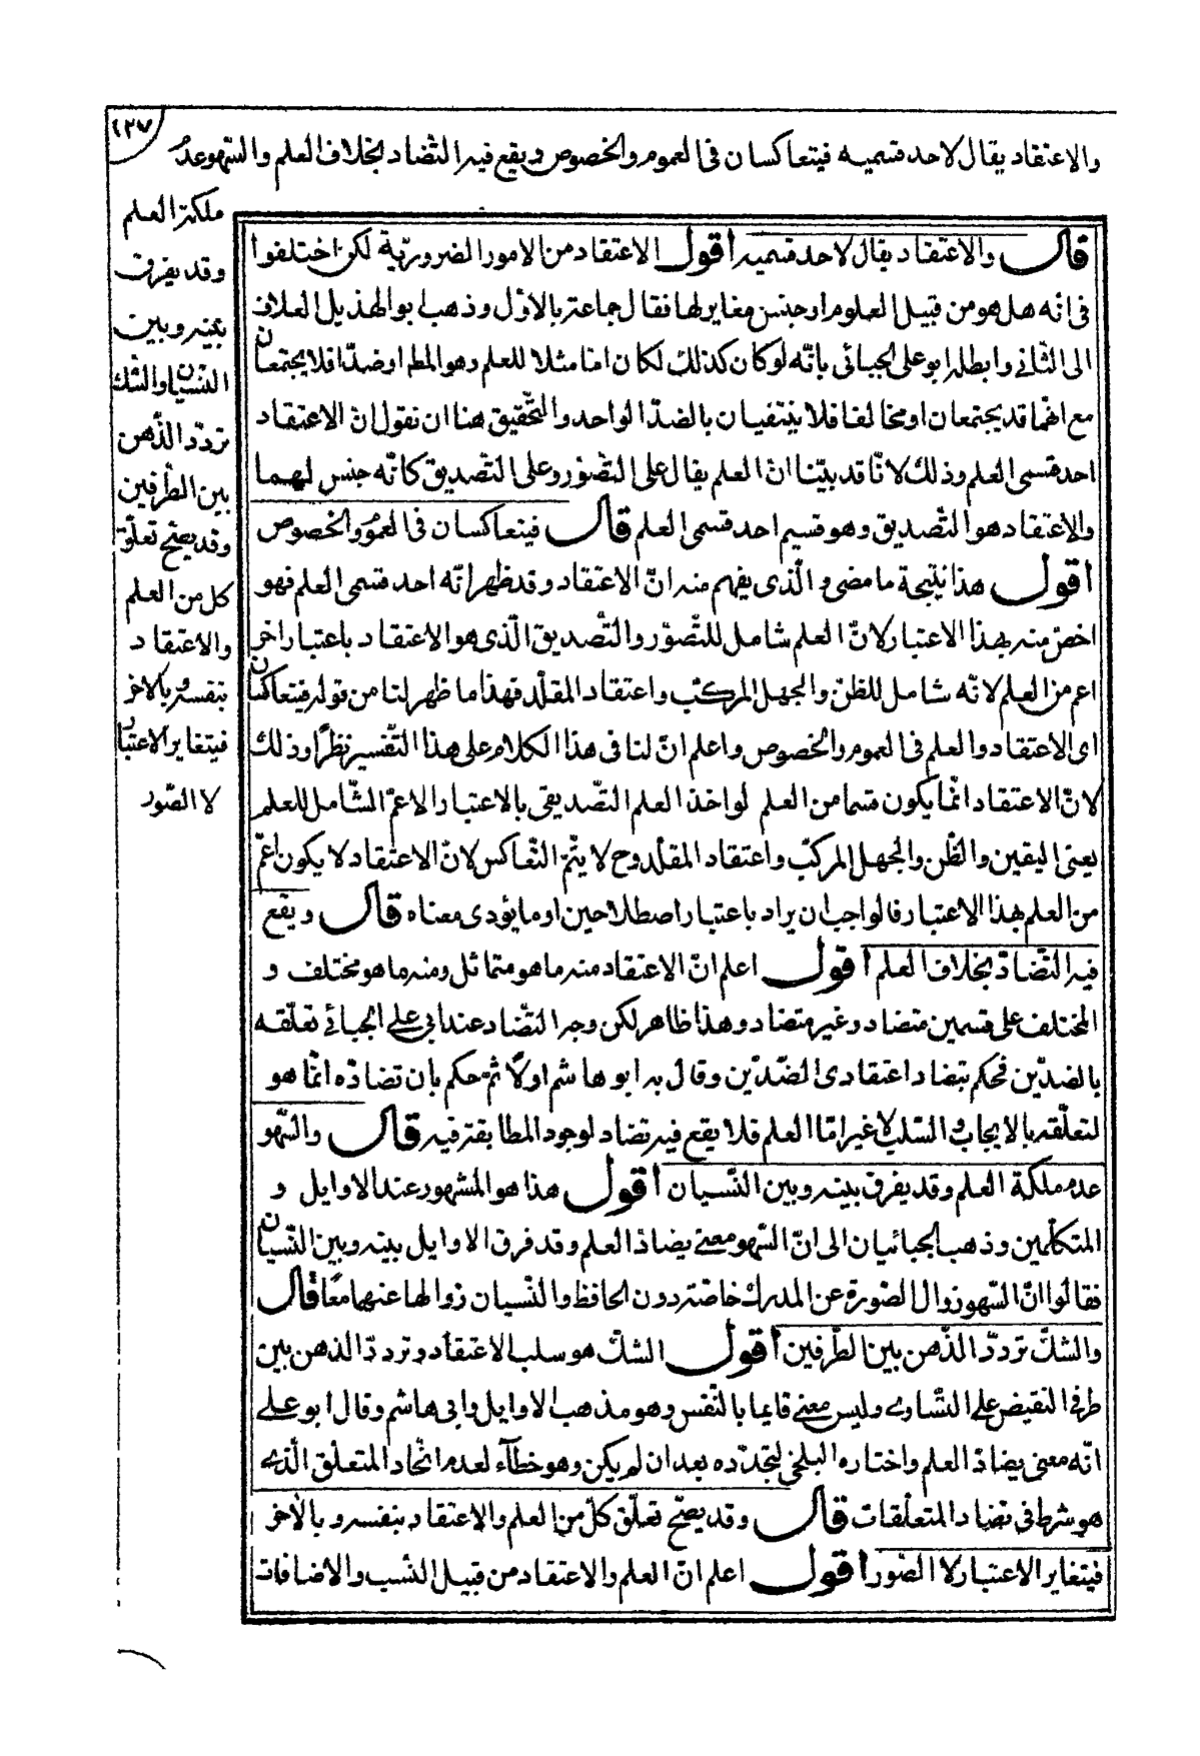 ١٢٧
والاعتقاد يقال لاحد قسميه فيتعاكسان فى العموم والخصوص ويقع فيه التضاد بخلاف العلم والسهو عدم
ملكة العلم
وقد يفرق
بينه وبين
النسيان والشك
تردد الذهن
بين الطرفين
وقد يصح تعلق
كل من العلم
والاعتقاد
بنفسه وبالاخر
فيتغاير الاعتبار
لا الصور
قال والاعتقاد يقال لاحد قسميه اقول الاعتقاد من الامور الضرورية لكن اختلفوا
فى انه هل هو من قبيل العلوم او جنس مغاير لها فقال جماعة بالاول وذهب ابو الهذيل العلاف
الى الثانى وابطله ابو على الجبائى بانه لو كان كذلك لكان اما مثلا للعلم وهو المط او ضدا فلا يجتمعان
مع انهما قد يجتمعان او مخالفا فلا ينتفيان بالضد الواحد والتحقيق هنا ان نقول ان الاعتقاد
احد قسمى العلم وذلك لانا قد بينا ان العلم يقال على التصور وعلى التصديق كانه جنس لهما
والاعتقاد هو التصديق وهو قسيم احد قسمى العلم قال فيتعاكسان فى العموم والخصوص
اقول هذا نتيجة ما مضى والذى يفهم منه ان الاعتقاد وقد ظهر انه احد قسمى العلم فهو
اخص منه بهذا الاعتبار لان العلم شامل للتصور والتصديق الذى هو الاعتقاد باعتبار اخر
اعم من العلم لانه شامل للظن والجهل المركب واعتقاد المقلد فهذا ما ظهر لنا من قوله فيتعاكسان
اى الاعتقاد والعلم فى العموم والخصوص واعلم ان لنا فى هذا الكلام على هذا التفسير نظرا وذلك
لان الاعتقاد انما يكون قسما من العلم لو اخذ العلم التصديقى بالاعتبار الاعم الشامل للعلم
يعنى اليقين والظن والجهل المركب واعتقاد المقلد وح لا يتم التعاكس لان الاعتقاد لا يكون اعم
من العلم بهذا الاعتبار فالواجب ان يراد باعتبار اصطلاحين او ما يؤدى معناه قال ويقع
فيه التضاد بخلاف العلم اقول اعلم ان الاعتقاد منه ما هو متماثل ومنه ما هو مختلف و
المختلف على قسمين متضاد وغير متضاد وهذا ظاهر لكن وجه التضاد عند ابى على الجبائى تعلقه
بالضدين فحكم بتضاد اعتقادى الضدين وقال به ابو هاشم اولا ثم حكم بان تضاده انما هو
لتعلقه بالايجاب والسلب لا غير اما العلم فلا يقع فيه تضاد لوجود المطابقة فيه قال والسهو
عدم ملكة العلم وقد يفرق بينه وبين النسيان اقول هذا هو المشهور عند الاوايل و
المتكلمين وذهب الجبائيان الى ان السهو معنى يضاد العلم وقد فرق الاوايل بينه وبين النسيان
فقالوا ان السهو زوال الصورة عن المدرك خاصة دون الحافظ والنسيان زوالها عنهما معا قال
والشك تردد الذهن بين الطرفين اقول الشك هو سلب الاعتقاد وتردد الذهن بين
طرفى النقيض على التساوى وليس معنى قايما بالنفس وهو مذهب الاوايل وابى هاشم وقال ابو على
انه معنى يضاد العلم واختاره البلخى لتجدده بعد ان لم يكن وهو خطآء لعدم اتحاد المتعلق الذى
هو شرط فى تضاد المتعلقات قال وقد يصح تعلق كل من العلم والاعتقاد بنفسه وبالاخر
فيتغاير الاعتبار لا الصور اقول اعلم ان العلم والاعتقاد من قبيل النسب والاضافات